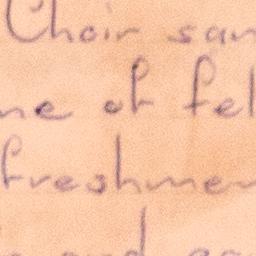 Choir san
me of fel
freshmen
and